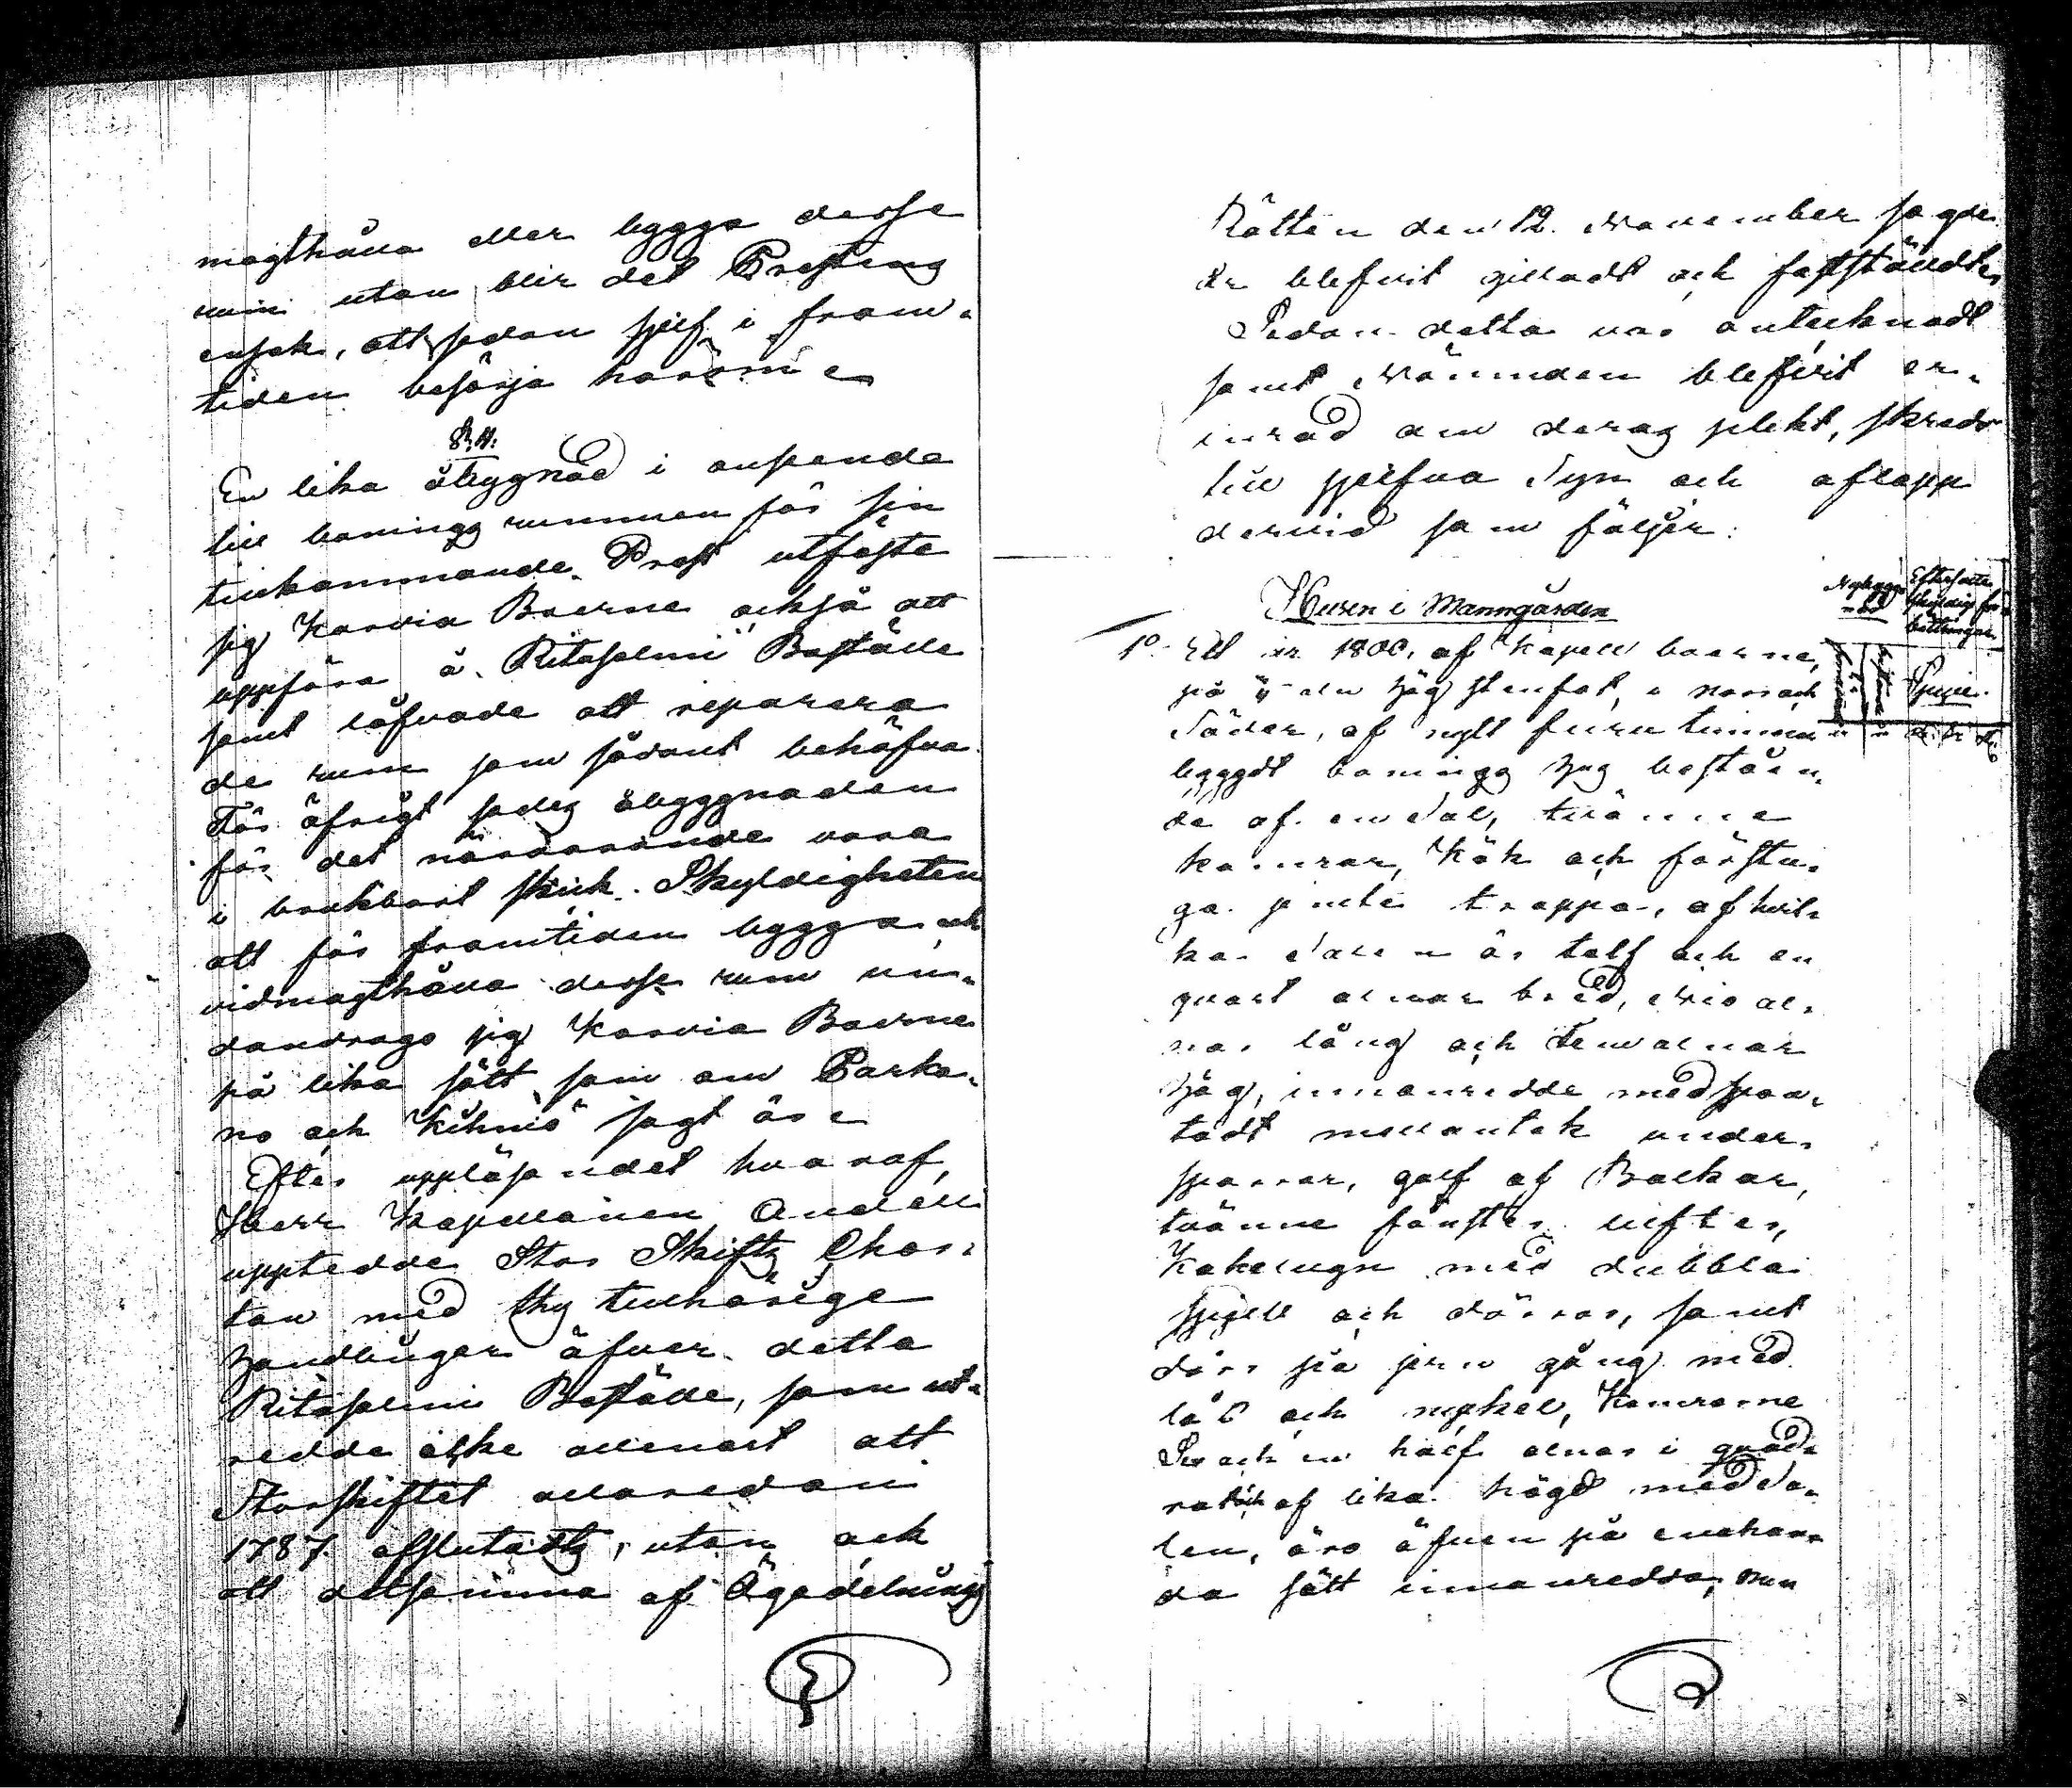 magthålla eller bygga desse
rum utan blir det Prestens
ensak, att sedan sjelf i fram-
tiden besörja härom
§ 4.
En lika åbyggnad i anseende
till bonings rummen för sin
tillkommande Prest utfäste
sig Karvia Boerne också att
uppföra å Ritasalmi Boställe
samt låfvade att reparera
de rum som sådant behöfva
För öfrigt sades åbyggnaden
för det närvarande vara
i brukbart skick. Skyldigheten
att för framtiden bygga och
vidmagthålla desse rum un-
dandrogo sig Karvia Boerne
på lika sätt som om Parka-
no och Kihniö sagt är
Efter uppläsandet hvaraf,
Herr Kapellanen Andelin
upptedde Stor Skifts Char-
tan med thy tillhörige
handlingar öfver detta
Ritasalmi Boställe, som ut-
redde icke allenast att
Storskiftet allaredan
1787. afslutadts, utan ock
att detsamma af Ägodelnings
Rätten den 12. November sagde
år blefvit gilladt och faststäldt
Sedan detta var antecknadt
samt Nämnden blefvit er-
inrad om deras plikt, skreds
till sjelfva Syn och aflopp
dervid som följer:
Husen i Manngården
Nybygg-
nad
Efterfalte
skyldige för-
bättringar.
1o. Ett år 1800, af Kapell boerne,
på en alns hög stenfot, i norr och
Söder, af nytt furu timmer
byggdt bonings hus bestående
de af en Sal, tvänne
kamrar, Kök och förstu-
ga jemte trappa, af hvil-
ka Salen är tolf och en
qvart alnar bred, Nio al-
nar lång och Fem alnar
hög, innanredde med spon-
tadt mellantak under
sparrar, golf af Balkar,
tvänne fönster lufter,
Kakelugn med dubbla
spjell och dörrar, samt
dörr på jern gång med
lås och nyckel, Kamrarne
Sex och en half alnar i quad-
rat och af lika högd med Sa-
len, äro äfven på enahan-
da sätt innanredda, men